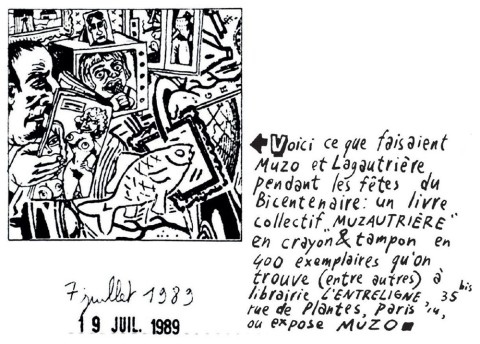 Voici ce que faisaient
Muzo et Lagautrière
pendant les fêtes du
Bicentenaire: un livre
collectif "MUZAUTRIÈRE"
en crayon & tampon en
400 exemplaires qu'on
trouve (entre autres) à
librairie L'ENTRELIGNE, 35 bis
rue de Plantes, Paris 14,
ou expose MUZO
7 juillet 1989
19 JUIL. 1989